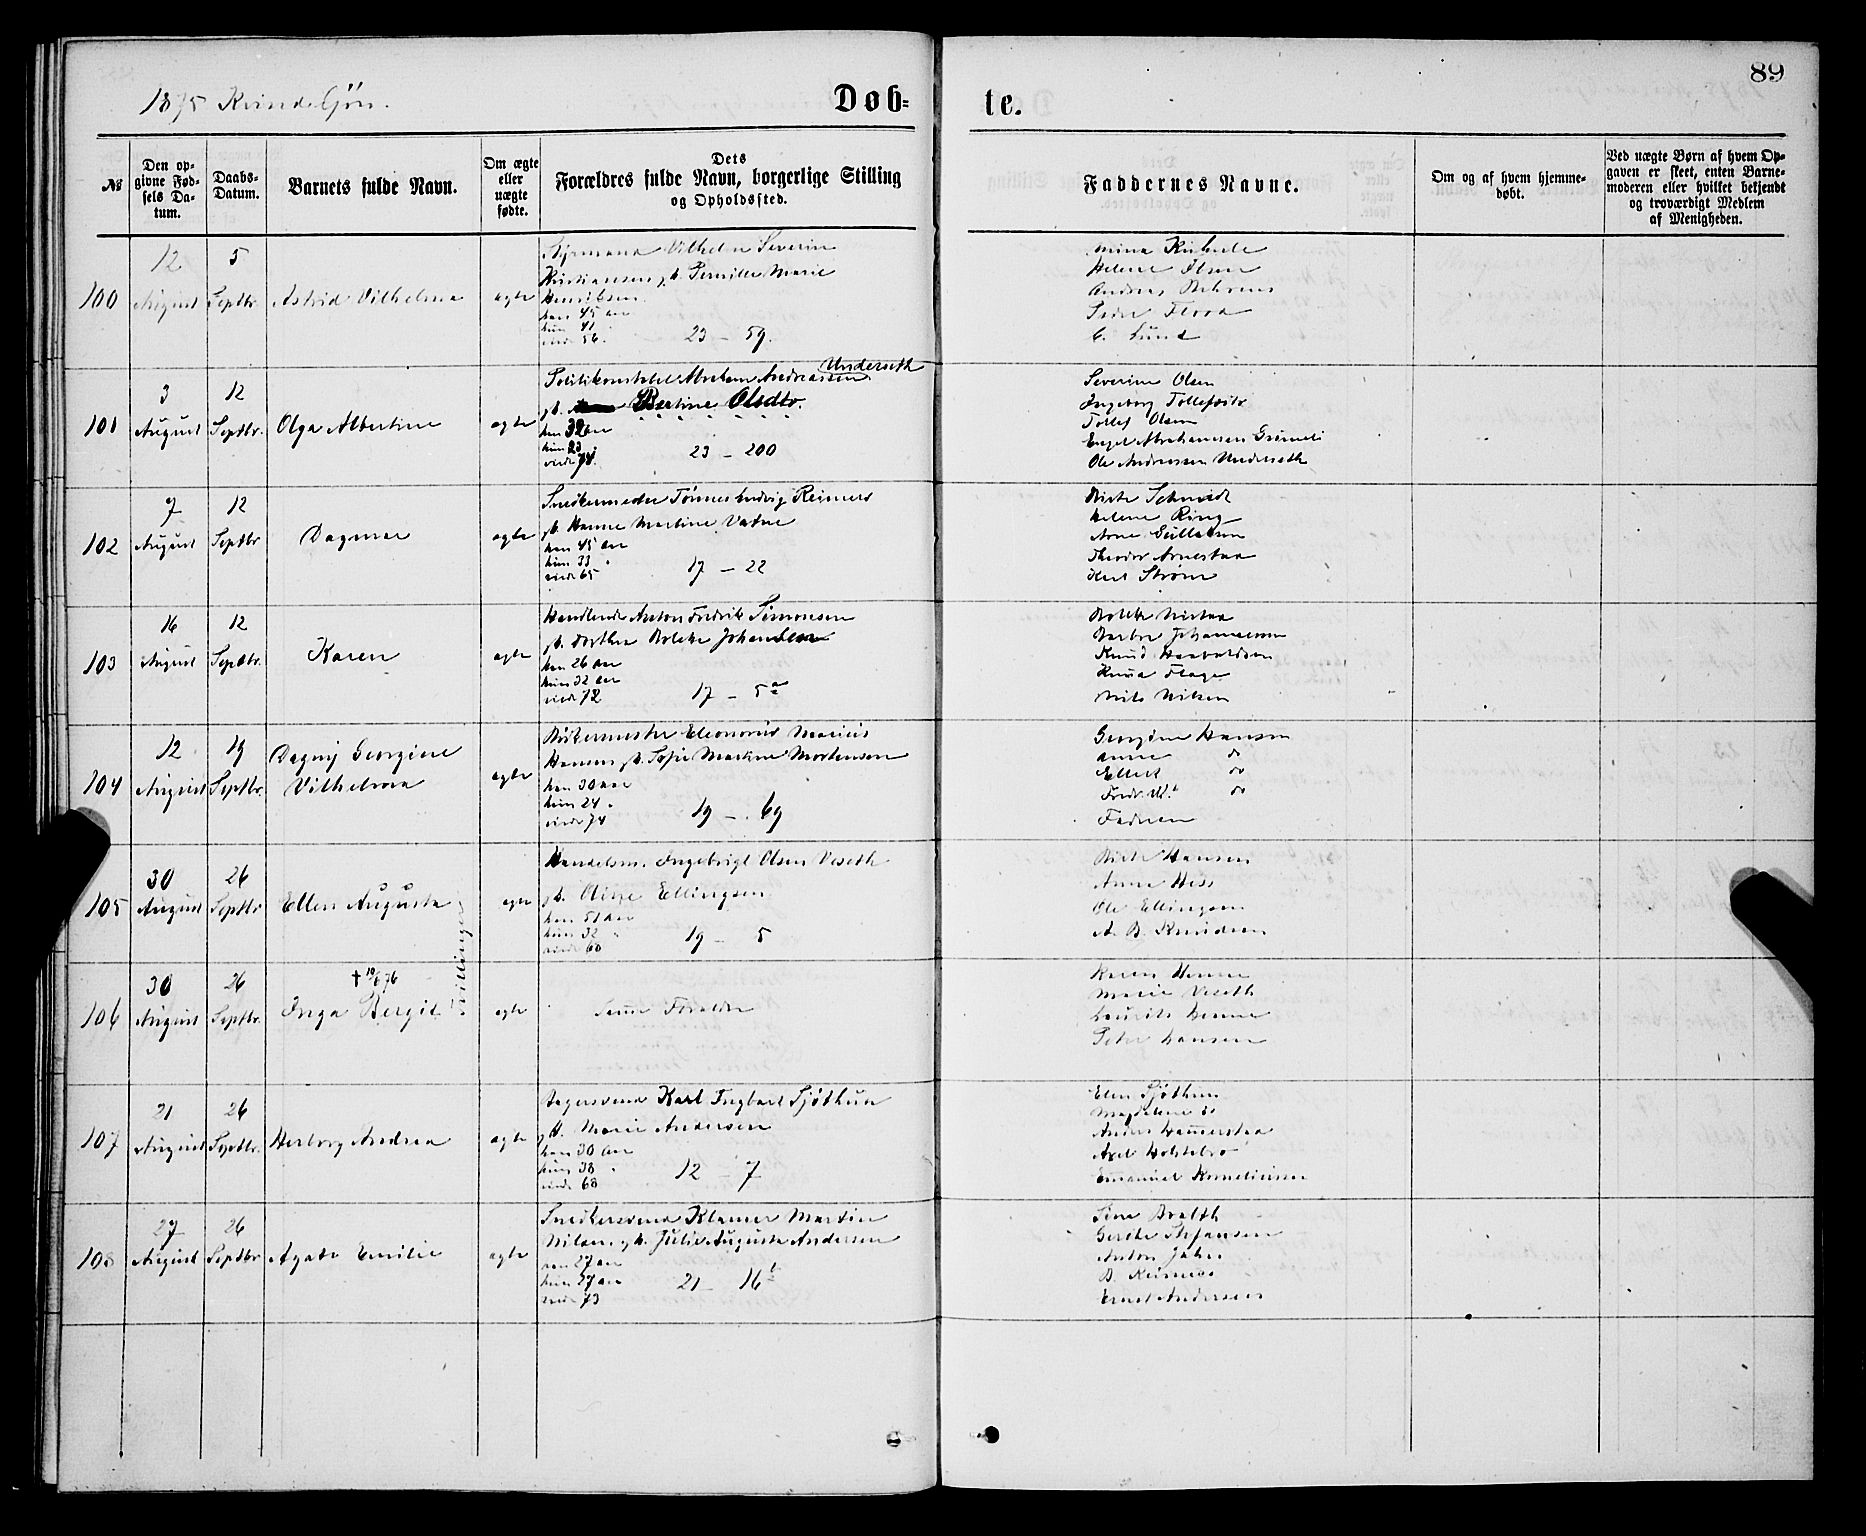 89
1875 Kvindekjön.
Döb-
te.
№
Den opgivne Fødsels Datum.
Daabs-Datum.
Barnets fulde Navn.
Om ægte eller uægte fødte.
Dets Forældres fulde Navn, borgerlige Stilling og Opholdssted.
Faddernes Navne.
Om og af hvem hjemmedøbt.
Ved uægte Børn af hvem Opgaven er skeet, enten Barnemoderen eller hvilket bekjendt og troværdigt Medlem af Menigheden.
100
12 August
5 Septbr.
Astrid Vilhelma
ægte
Styrmand Vilhelm Severin
Kristiansen, g. h. Pernille Marie
Henriksen.
han 45 aar
hun 41
viede 56.
23 – 59.
Helene Olsen
Andreas Behrens
C. Lund
101
3 August
12 Septbr.
Olga Albertine
ægte
Politikonstabel Abraham Andreassen Underseth
g. h. Bertine Olsdtr.
han 32 aar
hun 23
viede 74.
23 – 200
Severine Olsen
Ingeborg Tollefsdtr
Tollef Olsen
Engel Abrahamsen
Ole Andreassen Underseth
102
7 August
12 Septbr
Dagmar
ægte
Snedkermester Tönnes Ludvig Reimers
g. h. Hanne Martine Vatne
han 45 aar
hun 33 "
viede 65
17 – 22
Birte Schmidt
Helene Ring
Arne
Theodor Arnestaa
Karl Ström
103
16 August
12 Septbr.
Karen
ægte
Handlende Anton Fredrik Simonsen
g. h. Dorthea Bolette Johannesen
han 26 aar
hun 32 aar
viede 72
17 – 5 a
Barbro Johannesen
Knud Haavaldsen
Nils Nilsen
104
12 August
19 Septbr.
Dagny Georgine
Vilhelma
ægte
Bödkermester Eleonorus Marius
Hansen g. h. Sofie Martine Mortensen
han 30 aar
hun 24 "
viede 74
19 – 69
Georgine Hansen
Anna do
Ellert do
Fredr. M. do
Faderen
105
30 August
26 Septbr
Ellen Augusta
Tvillinger
ægte
Handelsm. Ingebrigt Olsen Veseth
g. h. Oline Ellingsen
han 51 aar
hun 32 "
viede 60
19 – 5
Birte Hansen
Anna Hess
Ole Ellingsen
A. B. Knudsen
106
30 August
26 Septbr.
† 10/6 76
Inga Bergit
ægte
Samme Forældre
Karen Hanne
Marie Veseth
Laurits Hanne
Peter Hansen
107
21 August
26 Septbr.
Herborg Andrea
ægte
Bagersvend Karl Ingbart Sjöthun
g. h. Marie Andersen
han 30 aar
hun 38 "
viede 68
12 7
Elen Sjöthun
Magdalene do
Anders Hammerstaa
Axel Holstebro
Emanuel Korneliussen
108
27 August
26 Septbr
Agate Emilie
ægte
Snedkersvend Klamer Martin
Nilsen, g. h. Julie Augusta Andersen
han 27 aar
hun 27 aar
viede 73
21 – 16 b
Gerthe Stefansen
B. Reimers
Ernst Andersen